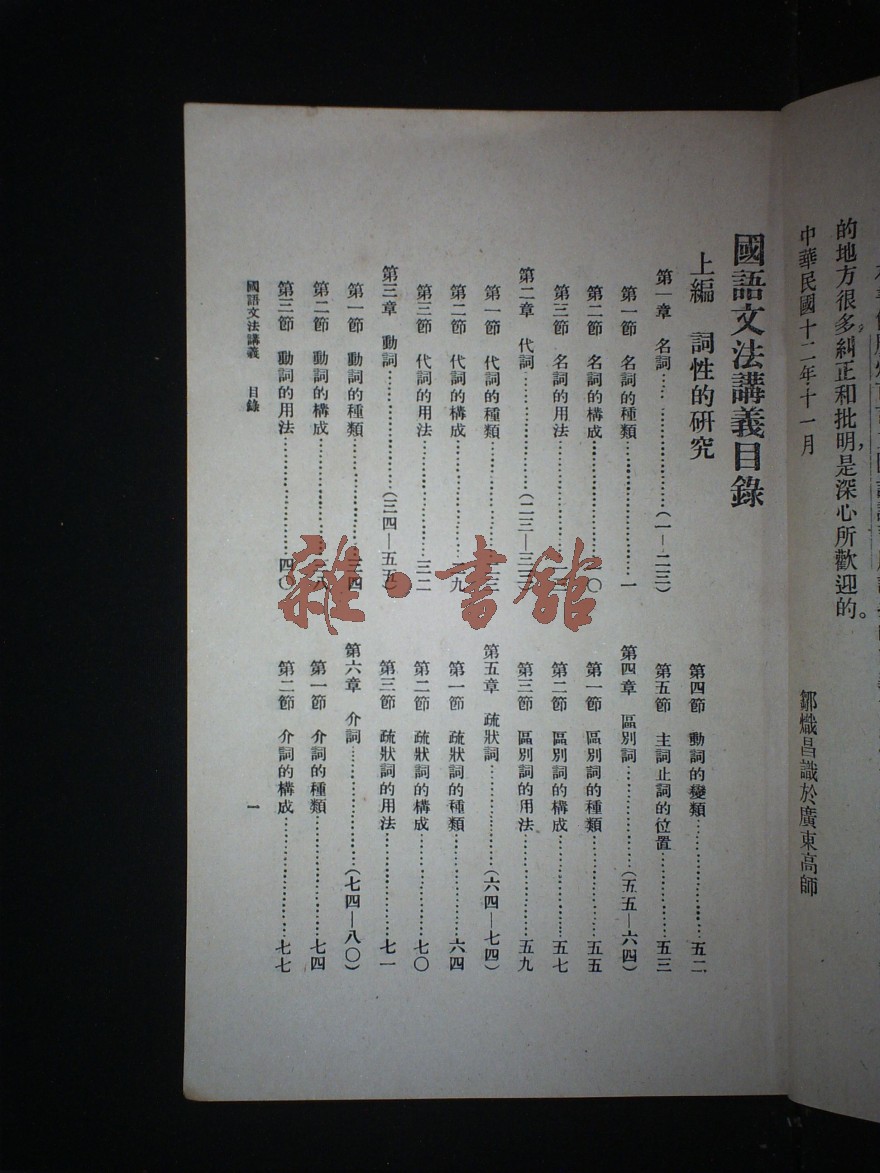 的地方很多,糾正和批明,是深心所歡迎的。
中華民國十二年十一月
鄒熾昌識於廣東高師
國語文法講義目錄
上編 詞性的研究
第一章 名詞……………………(一—二三)
第一節 名詞的種類……………………一
第二節 名詞的構成……………………〇
第三節 名詞的用法……………………
第二章 代詞……………………(二三—三
第一節 代詞的種類……………………三
第二節 代詞的構成……………………九
第三節 代詞的用法……………………三二
第三章 動詞……………………(三四—五五)
第一節 動詞的種類……………………三四
第二節 動詞的構成……………………八
第三節 動詞的用法……………………四〇
第四節 動詞的變類……………………五二
第五節 主詞止詞的位置……………………五三
第四章 區別詞……………………(五五—六四)
第一節 區別詞的種類……………………五五
第二節 區別詞的構成……………………五七
第三節 區別詞的用法……………………五九
第五章 疏狀詞……………………(六四—七四)
第一節 疏狀詞的種類……………………六四
第二節 疏狀詞的構成……………………七〇
第三節 疏狀詞的用法……………………七一
第六章 介詞……………………(七四—八〇)
第一節 介詞的種類……………………七四
第二節 介詞的構成……………………七七
國語文法講義 目錄
一
雜·書館